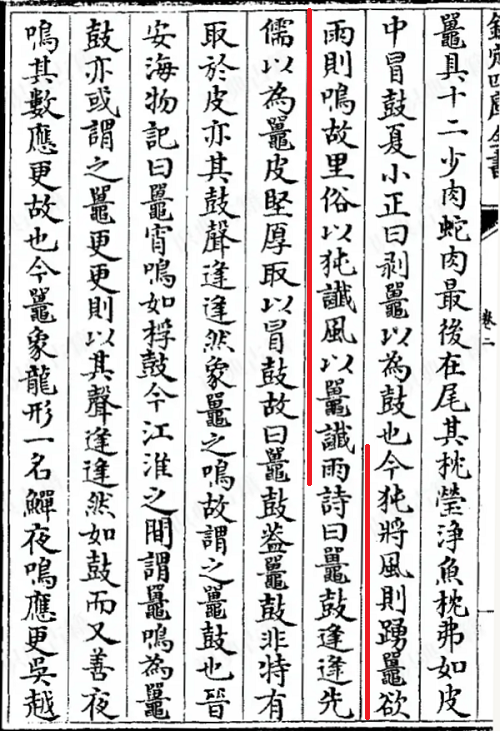 欽定四庫全書
卷二
鼉具十二少肉蛇肉最後在尾其枕瑩淨魚枕弗如皮
中冒鼓夏小正曰剥鼉以為鼓也今㹠將風則踴鼉欲
雨則鳴故里俗以㹠讖風以鼉讖雨詩曰鼉鼓逢逢先
儒以為鼉皮堅厚取以冒鼓故曰鼉鼓葢鼉鼓非特有
取於皮亦其鼓聲逢逢然象鼉之鳴故謂之鼉鼓也晉
安海物記曰鼉宵鳴如桴鼓今江淮之間謂鼉鳴為鼉
鼓亦或謂之鼉更更則以其聲逢逢然如鼓而又善夜
鳴其數應更故也今鼉象龍形一名鱓夜鳴應更吳越